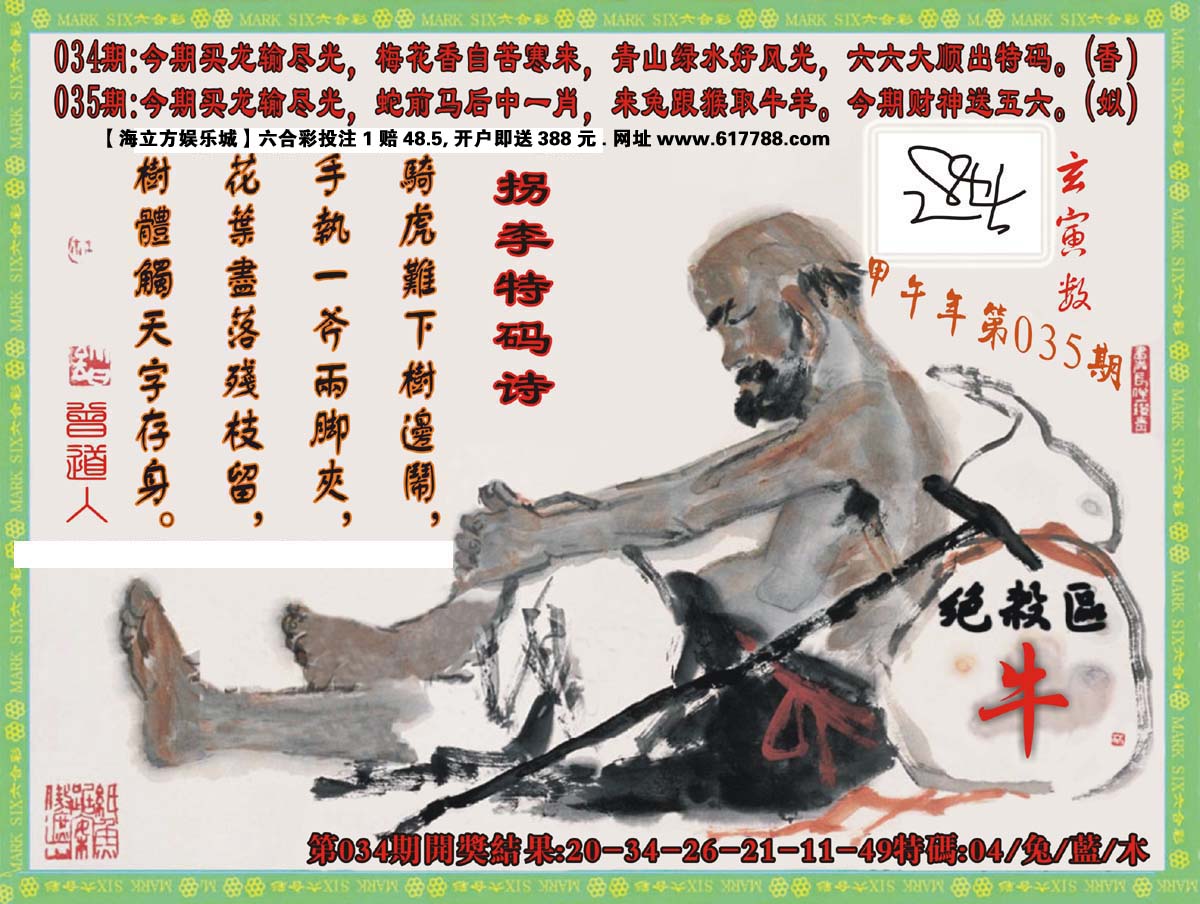 034期:今期买龙输尽光，梅花香自苦寒来，青山绿水好风光，六六大顺出特码。(香)
035期:今期买龙输尽光，蛇前马后中一肖，来兔跟猴取牛羊。今期财神送五六。(姒)
【海立方娱乐城】六合彩投注 1 赔 48.5, 开户即送 388 元 . 网址 www.617788.com
玄寅数
甲午年第035期
拐李特码诗
騎虎難下樹邊鬧，
手執一斧兩脚夾，
花葉盡落殘枝留，
樹體觸天字存身。
曾道人
绝殺區
牛
第034期開獎結果:20-34-26-21-11-49特碼:04/兔/藍/木
MARK SIX六合彩